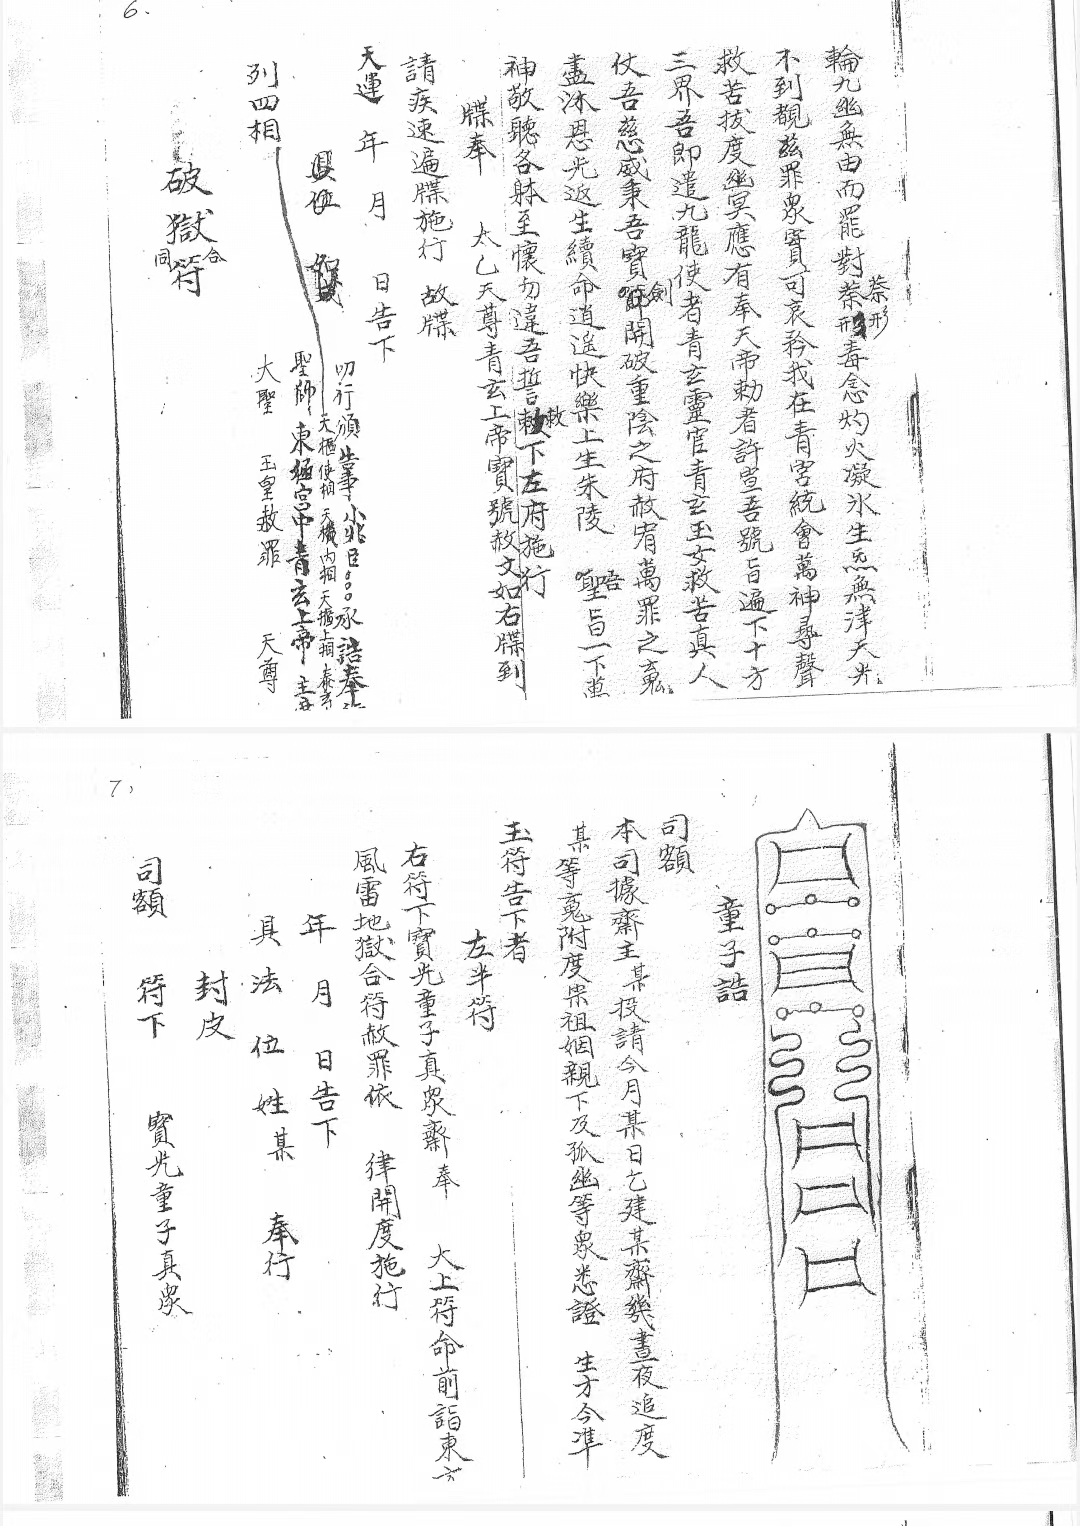 6.
輪九幽無由而罷對荼形毒念灼火凝氷生炁無津天光
荼形
不到覩兹罪衆實可哀矜我在青宮統會萬神尋聲
救苦拔度幽冥應有奉天帝勅者許宣吾號旨遍下十方
三界吾即遣九龍使者青玄靈官青玄玉女救苦真人
仗吾慈威秉吾寶開破重陰之府赦宥萬罪之魂
劍
盡沐恩光返生續命逍遥快樂上生朱陵 聖旨一下萬
神敬聽各躰至懷勿違吾誓勅下左府施行
敕
牒奉 太乙天尊青玄上帝寶號赦文如右牒到
請疾速遍牒施行 故牒
天運 年 月 日告下
具位
叨行頒告事小兆臣承誥奉
列四相
天樞使相 天機內相 天機上相
聖師 東極宮中青玄上帝
大聖 玉皇赦罪 天尊
破獄符
同
合
7,
童子誥
司額
本司據齋主某投請今月某日乞建某齋幾晝夜追度
某等魂附度祟祖姻親下及孤幽等衆悉證 生方今準
玉符告下者
左半符
右符下寶光童子真衆齋奉 太上符命前詣東方
風雷地獄合符赦罪依 律開度施行
年 月 日告下
具法位姓某 奉行
封皮
司額 符下 寶光童子真衆